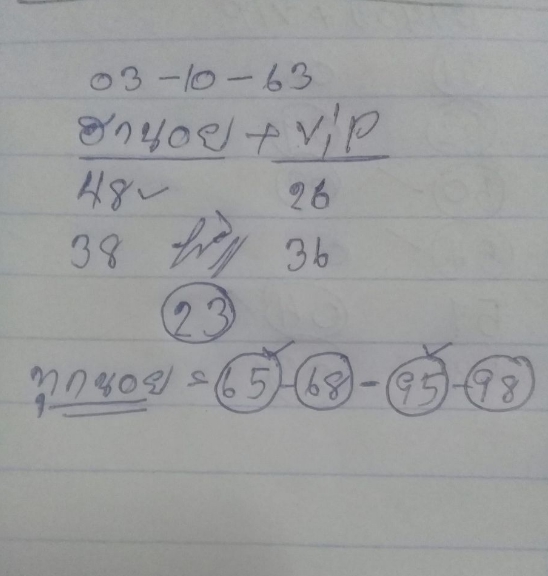 03-10-63
ฮานอย + V.i.P
48✓ 26
38 36
23
ทุกนอย = 65✓-68-95✓-98